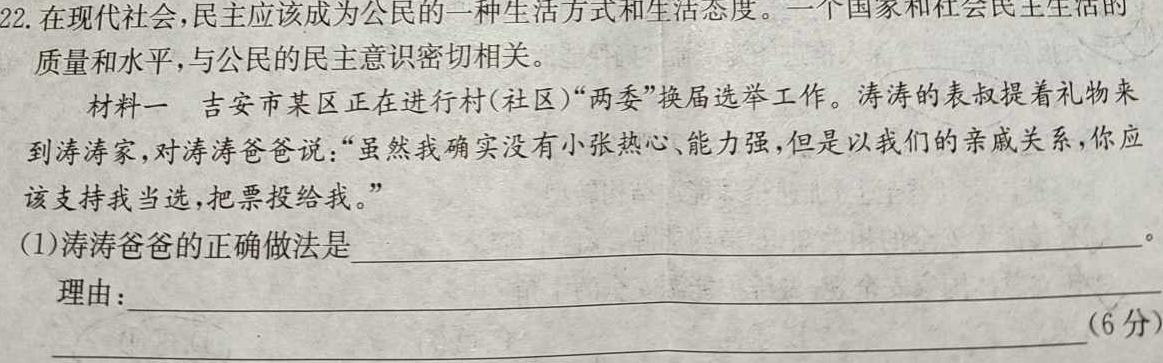 22. 在现代社会,民主应该成为公民的一种生活方式和生活态度。一个国家和社会民主生活的
质量和水平,与公民的民主意识密切相关。
材料一 吉安市某区正在进行村(社区)“两委”换届选举工作。涛涛的表叔提着礼物来
到涛涛家,对涛涛爸爸说:“虽然我确实没有小张热心、能力强,但是以我们的亲戚关系,你应
该支持我当选,把票投给我。”
(1)涛涛爸爸的正确做法是 。
理由:
(6分)